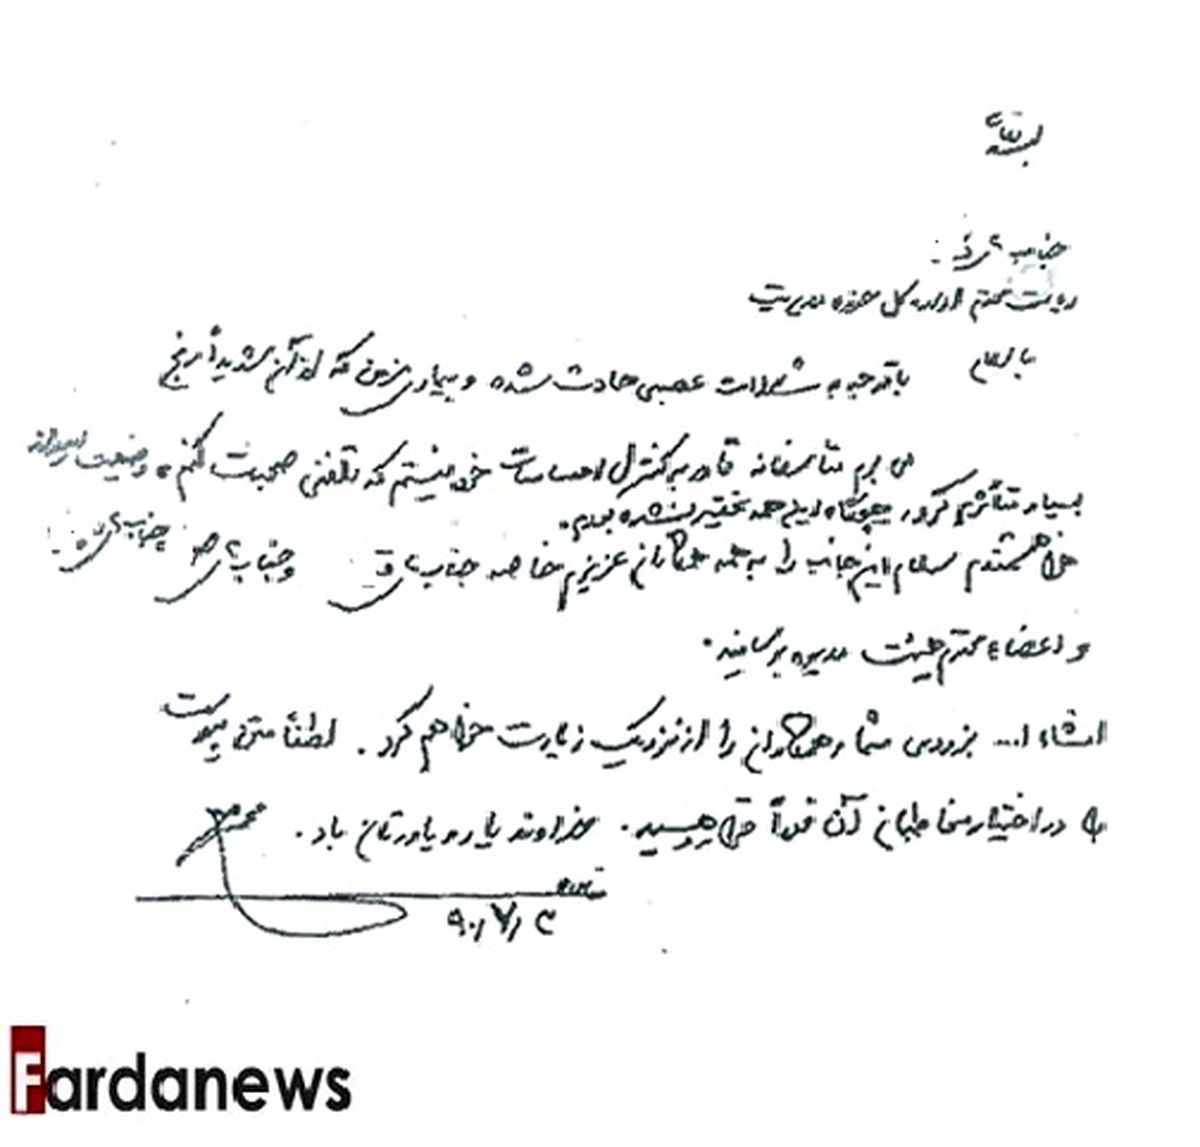 بسمه تعالی
جناب آقای
ریاست محترم اداره کل حوزه مدیریت
با سلام
با توجه به مشکلات عصبی حادث شده و بیماری مزمن که از آن شدیداً رنج
می برم متاسفانه قادر به کنترل احساسات خود نیستم که تلفنی صحبت کنم وضعیت
بسیار متأثرم کرد هیچگاه این همه تحقیر نشده بودم.
خواهشمندم سلام این جانب را به همه همکاران عزیزم خاصه جناب آقای و جناب آقای جناب آقای
و اعضاء محترم هیئت مدیره برسانید.
انشاء ا... بزودی شما و همکاران را از نزدیک زیارت خواهم کرد. لطفاً متن پیوست
را در اختیار مخاطبان آن فوراً قرار دهید. خداوند یار و یاورتان باد.
۹۰/۷/۴
Fardanews